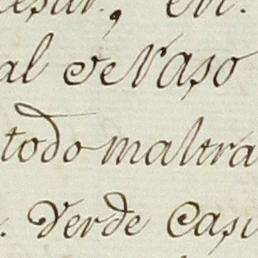 al de Vaso
todo maltra
. Verde Casi